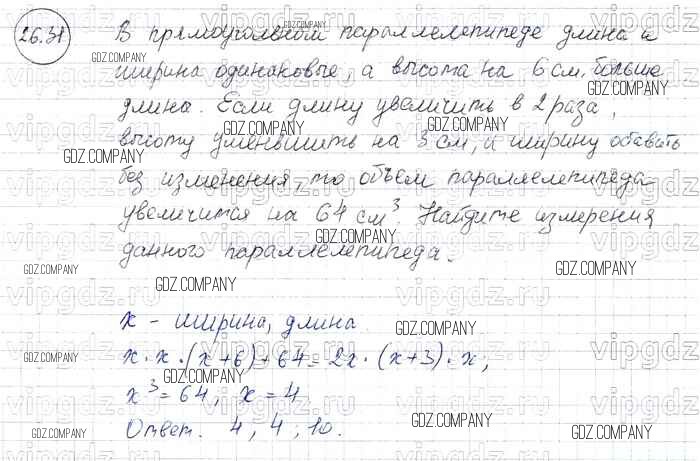 26.31 В прямоугольном параллелепипеде длина и
ширина одинаковые, а высота на 6 см. больше
длина. Если длину увеличить в 2 раза,
высоту уменьшить на 3 см, и ширину обавить
без изменения, то объем параллелепипеда
увеличится на 64 см³. Найдите измерения
данного параллелепипеда.
x – ширина, длина.
x · x · (x+6) + 64 = 2x · (x+3) · x;
x³ = 64, x = 4
Ответ. 4; 4; 10.
GDZ.COMPANY
vipgdz.ru